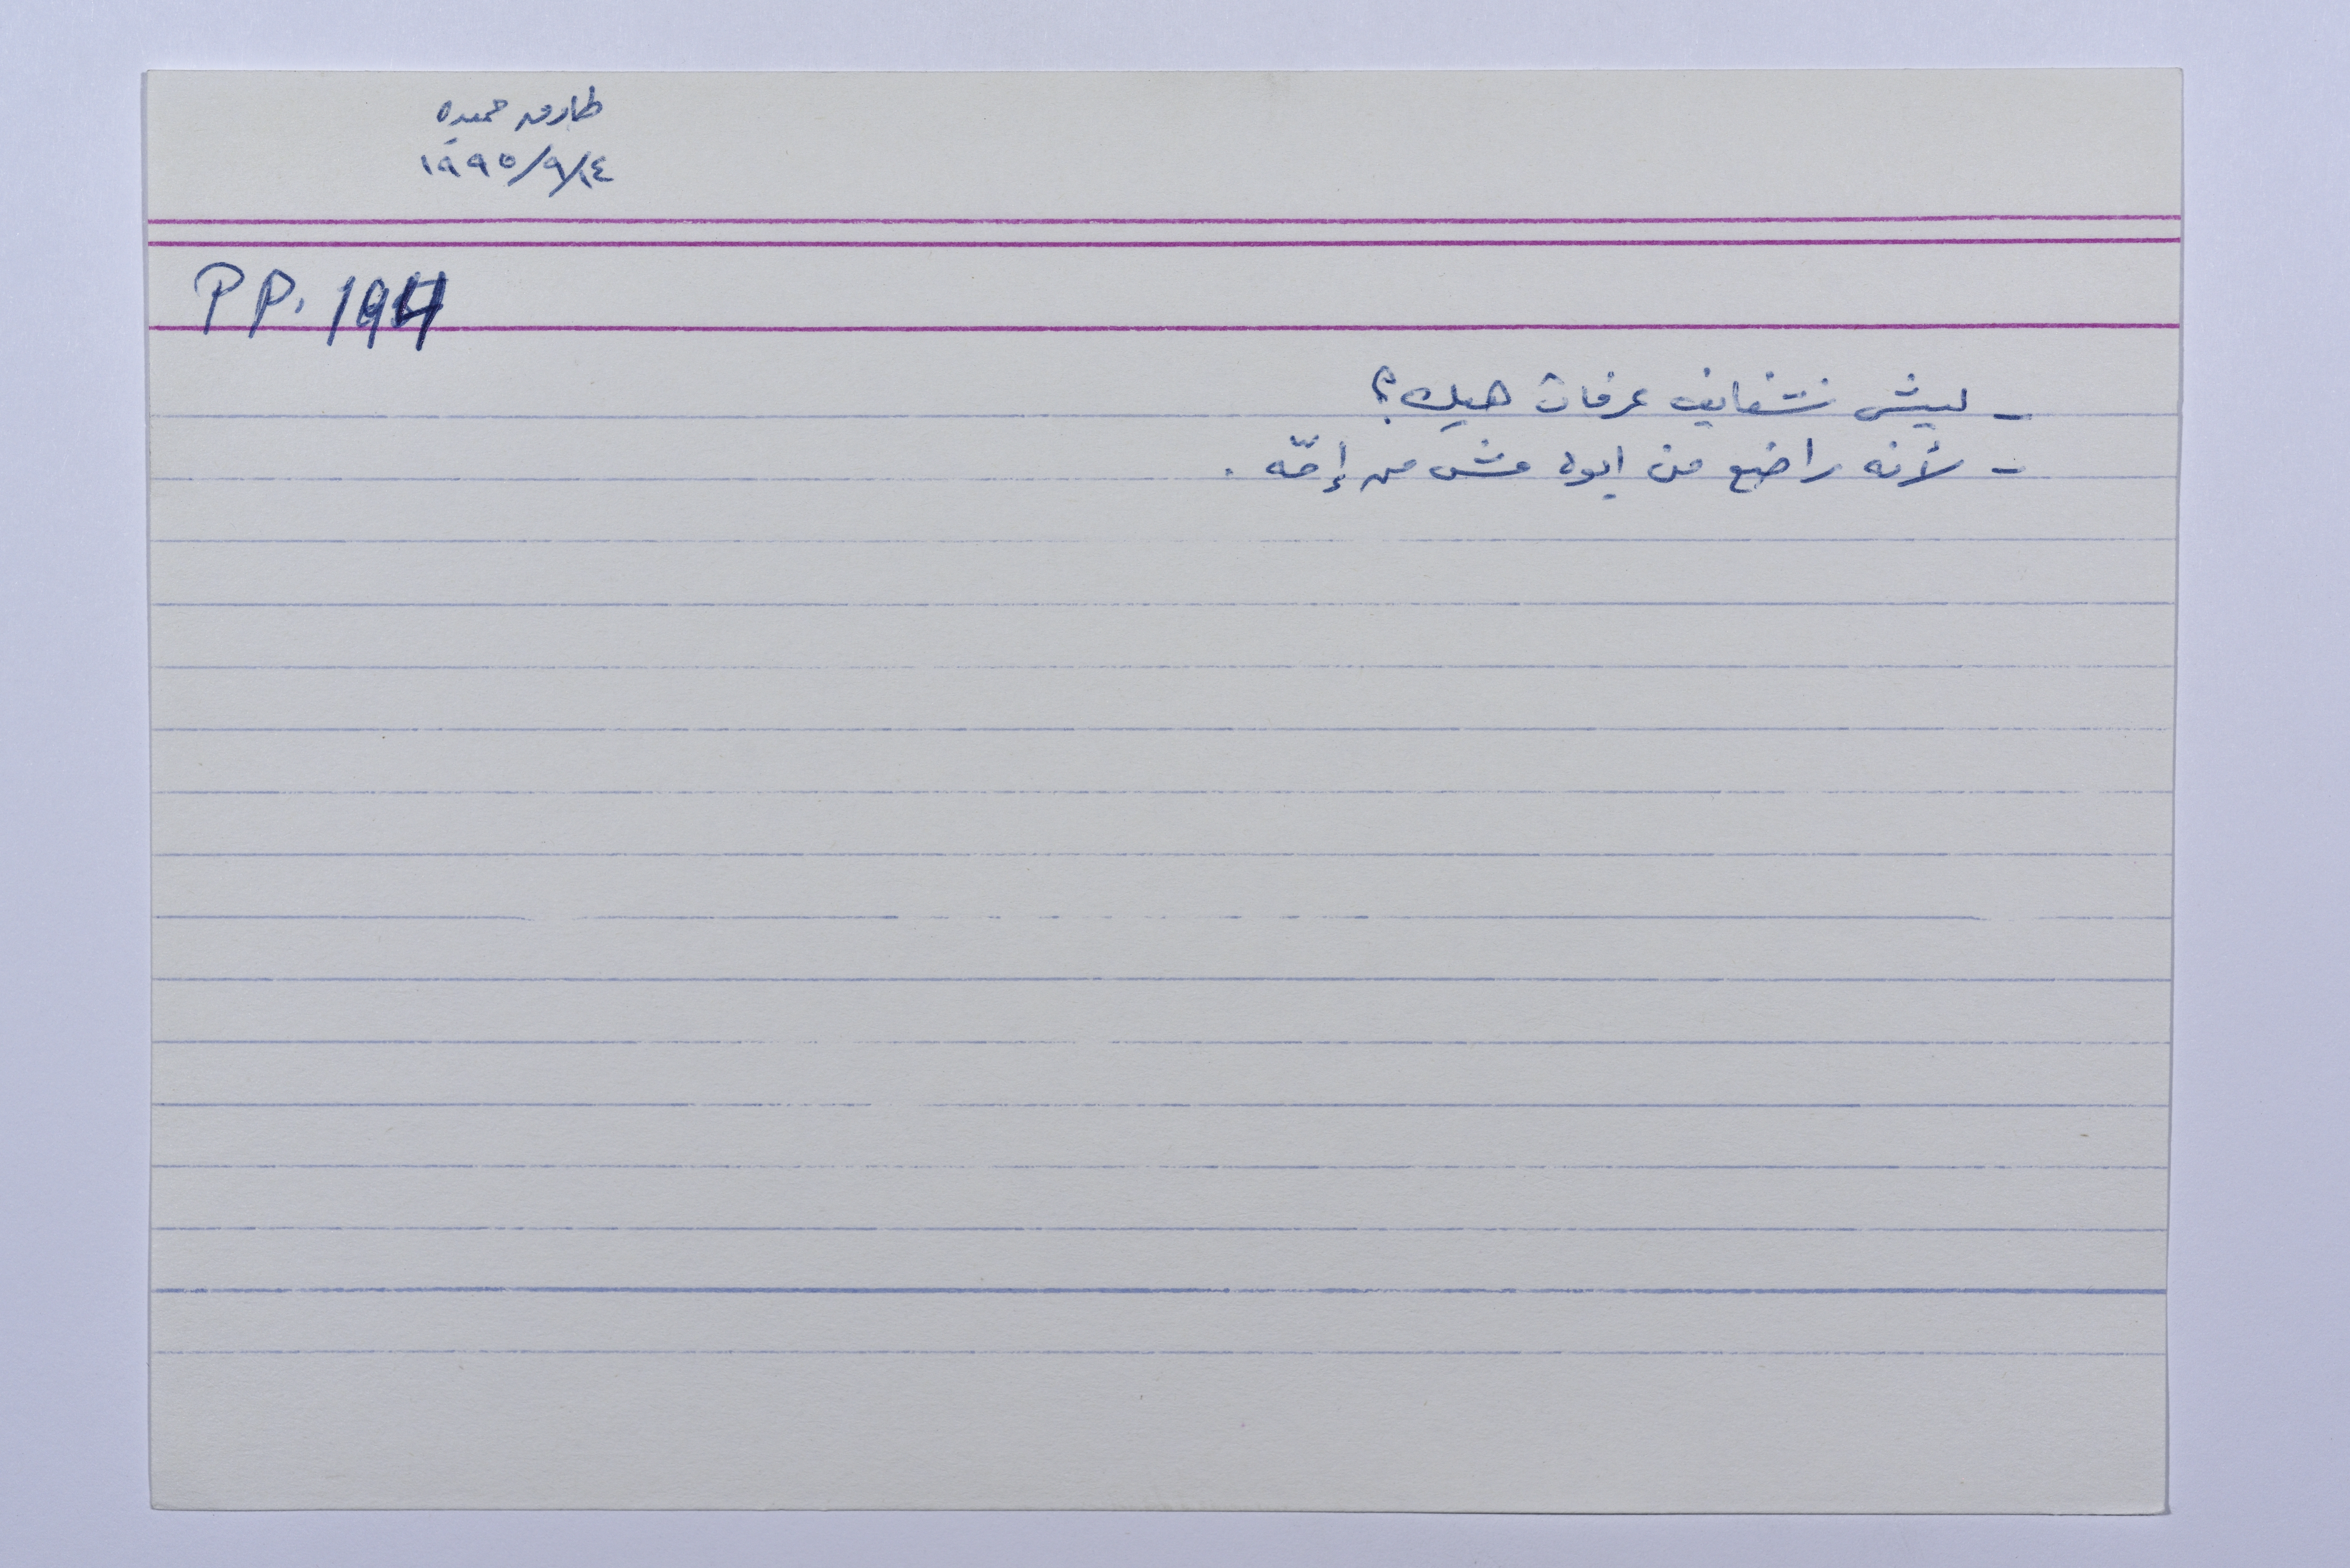 طارق حميده
١٩٩٥/٩/١٤
PP. 194
- ليش شفايف عرفات هيك؟
- لأنه راضع من ابوه مش من إمّه .